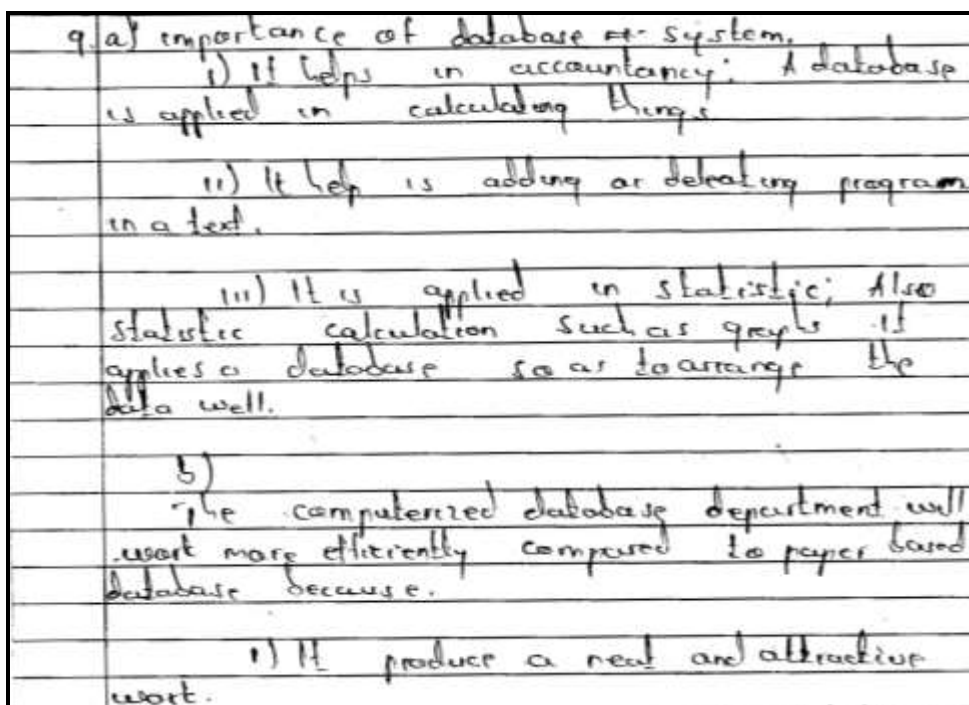 9. a) importance of database system.
i) It helps in accountancy; A database
is applied in calculating things
ii) It help is adding or deleating program
in a text.
iii) It is applied in statistic; Also
statistic calculation such as graphs it
applies a database so as to arrange the
data well.
b)
The computerized database department will
work more efficiently compared to paper based
database because.
i) It produce a neat and attractive
work.